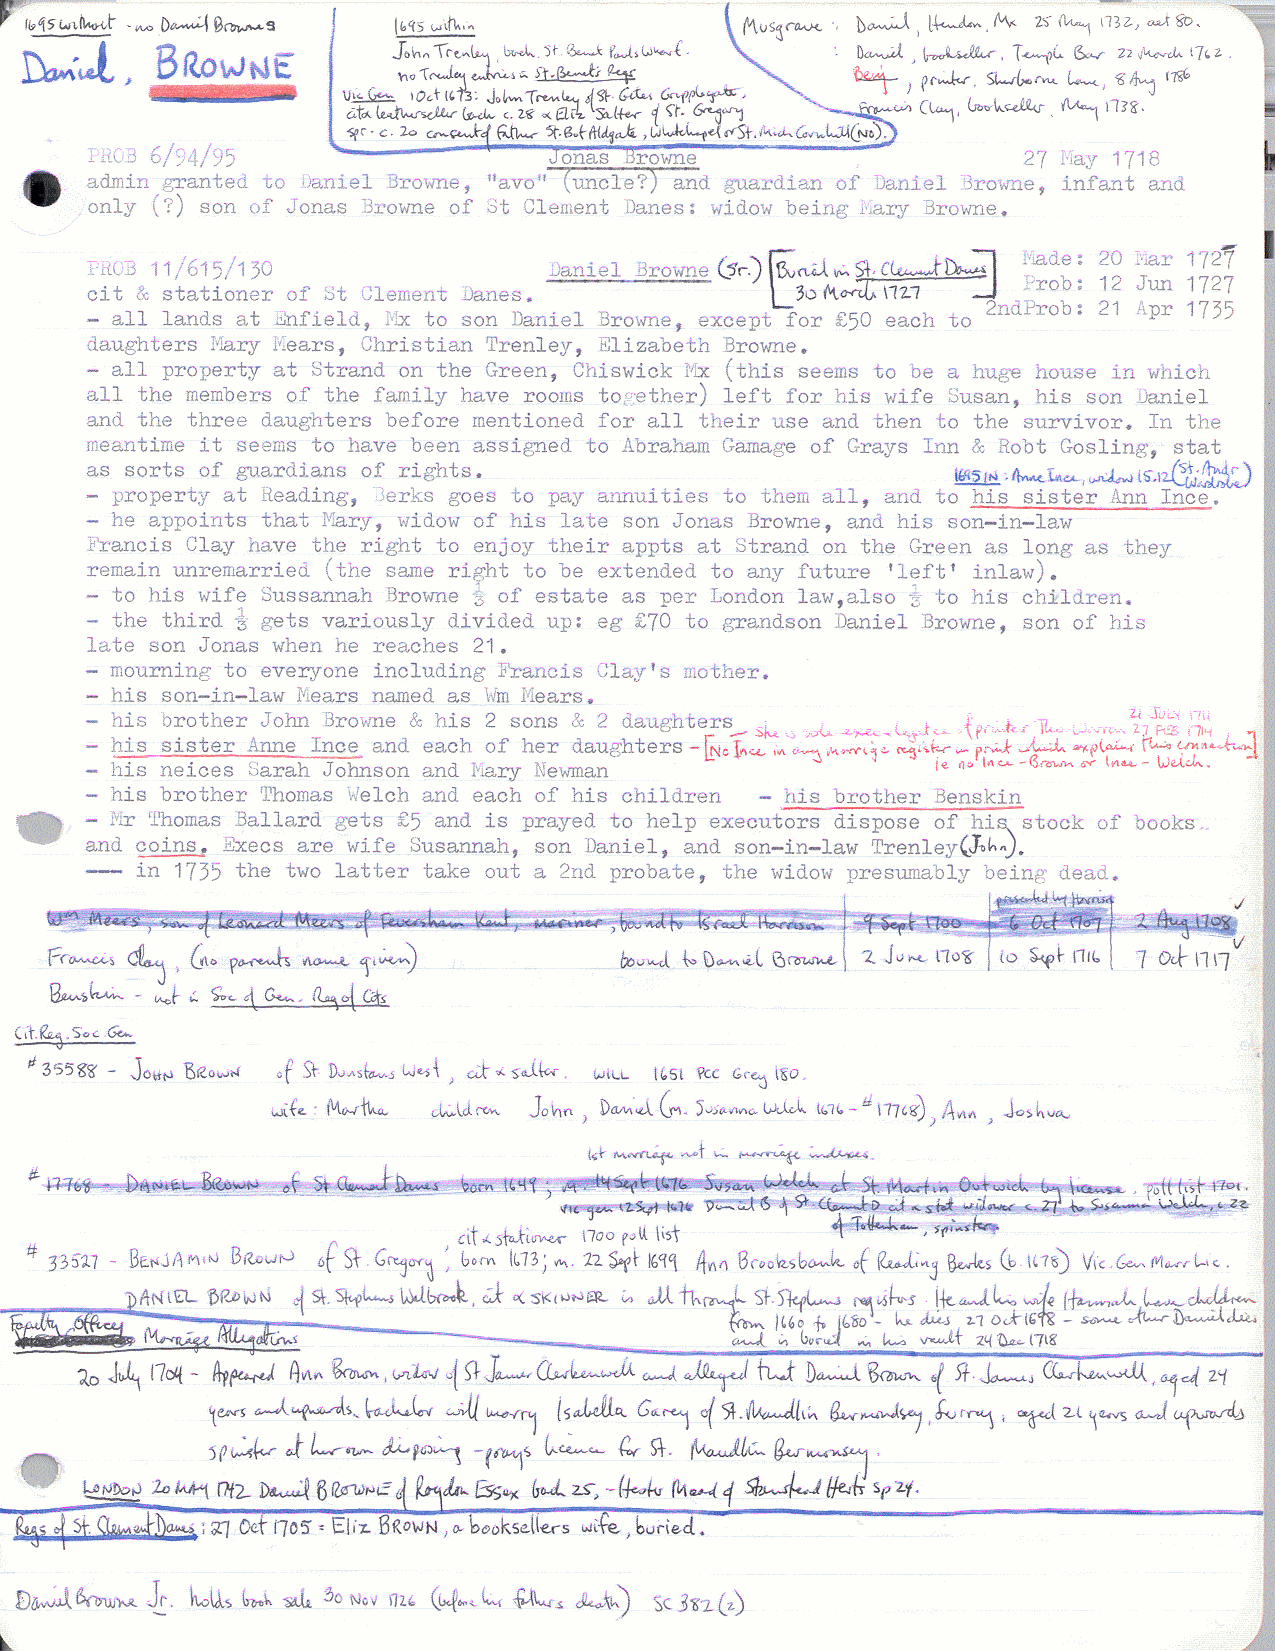 1695 without - no Daniel Brownes
Daniel, BROWNE
1695 within
John Trenley, bach. St. Benet Pauls Wharf.
no Trenley entries in St. Benet's Regs
Vic Gen 1 Oct 1673: John Trenley of St. Giles Cripplegate,
cit & leatherseller bach c. 28 & Eliz Salter of St. Gregory
spr. c. 20 consent of father St. Bot Aldgate, Whitchapel or St. Mich Cornhill (NO).
Musgrave: Daniel, Hendon, Mx 25 May 1732, aet 80.
: Daniel, bookseller, Temple Bar 22 March 1762.
Benj, printer, Sherborne Lane, 8 Aug 1786
Francis Clay, bookseller, May 1738.
PROB 6/94/95 Jonas Browne 27 May 1718
admin granted to Daniel Browne, "avo" (uncle?) and guardian of Daniel Browne, infant and
only (?) son of Jonas Browne of St Clement Danes: widow being Mary Browne.
PROB 11/615/130 Daniel Browne (Sr.) [Buried in St. Clement Danes 30 March 1727] Made: 20 Mar 1727
cit & stationer of St Clement Danes. Prob: 12 Jun 1727
2ndProb: 21 Apr 1735
- all lands at Enfield, Mx to son Daniel Browne, except for £50 each to
daughters Mary Mears, Christian Trenley, Elizabeth Browne.
- all property at Strand on the Green, Chiswick Mx (this seems to be a huge house in which
all the members of the family have rooms together) left for his wife Susan, his son Daniel
and the three daughters before mentioned for all their use and then to the survivor. In the
meantime it seems to have been assigned to Abraham Gamage of Grays Inn & Robt Gosling, stat
as sorts of guardians of rights.
1695 IN: Anne Ince, widow 15.12 (St. Andr Wardrobe)
- property at Reading, Berks goes to pay annuities to them all, and to his sister Ann Ince.
- he appoints that Mary, widow of his late son Jonas Browne, and his son-in-law
Francis Clay have the right to enjoy their appts at Strand on the Green as long as they
remain unremarried (the same right to be extended to any future 'left' inlaw).
- to his wife Sussannah Browne ⅓ of estate as per London law,also ⅓ to his children.
- the third ⅓ gets variously divided up: eg £70 to grandson Daniel Browne, son of his
late son Jonas when he reaches 21.
- mourning to everyone including Francis Clay's mother.
- his son-in-law Mears named as Wm Mears.
- his brother John Browne & his 2 sons & 2 daughters
21 JULY 1711
she is sole exec - legatee of printer Tho Warren 27 FEB 1714
- his sister Anne Ince and each of her daughters - [No Ince in any marriage register in print which explains this connection]
ie no Ince - Brown or Ince - Welch.
- his neices Sarah Johnson and Mary Newman
- his brother Thomas Welch and each of his children - his brother Benskin
- Mr Thomas Ballard gets £5 and is prayed to help executors dispose of his stock of books
and coins. Execs are wife Susannah, son Daniel, and son-in-law Trenley (John).
--- in 1735 the two latter take out a 2nd probate, the widow presumably being dead.
presented by Harrison
Wm Meers, son of Leonard Meers of Feversham Kent, mariner, bound to Israel Harrison 9 Sept 1700 6 Oct 1707 2 Aug 1708 ✓
Francis Clay, (no parents name given) bound to Daniel Browne 2 June 1708 10 Sept 1716 7 Oct 1717 ✓
Benskin - not in Soc of Gen. Reg of Cits
Cit. Reg. Soc. Gen
# 35588 - JOHN BROWN of St Dunstans West, cit & salter. WILL 1651 PCC Grey 180.
wife: Martha children John, Daniel (m. Susanna Welch 1676 - # 17768), Ann, Joshua
1st marriage not in marriage indexes.
# 17768 - DANIEL BROWN of St Clement Danes born 1649; m. 14 Sept 1676 Susan Welch at St. Martin Outwich by license. poll list 1701.
Vic gen 12 Sept 1676 Daniel B of St. Clement D cit & stat widower c. 27 to Susanna Welch, c. 22
of Tottenham, spinster
cit & stationer 1700 poll list
# 33527 - BENJAMIN BROWN of St. Gregory, born 1673; m. 22 Sept 1699 Ann Brooksbank of Reading Berks (b. 1678) Vic. Gen Marr Lic.
DANIEL BROWN of St. Stephens Walbrook, cit & SKINNER is all through St. Stephens registers. He and his wife Hannah have children
from 1660 to 1680 - he dies 27 Oct 1698 - some other Daniel dies
and is buried in his vault 24 Dec 1718
Faculty Office
Marriage Allegations
20 July 1704 - Appeared Ann Brown, widow of St James Clerkenwell and alleged that Daniel Brown of St. James Clerkenwell, aged 24
years and upwards, bachelor will marry Isabella Garey of St. Maudlin Bermondsey, Surrey, aged 21 years and upwards
spinster at her own disposing - prays licence for St. Maudlin Bermonsey.
LONDON 20 MAY 1742 Daniel BROWNE of Roydon Essex bach 25, - Hester Mead of Stanstead Herts sp 24.
Regs of St. Clement Danes: 27 Oct 1705 = Eliz BROWN, a booksellers wife, buried.
Daniel Browne Jr. holds book sale 30 Nov 1726 (before his fathers death) SC 382 (2)